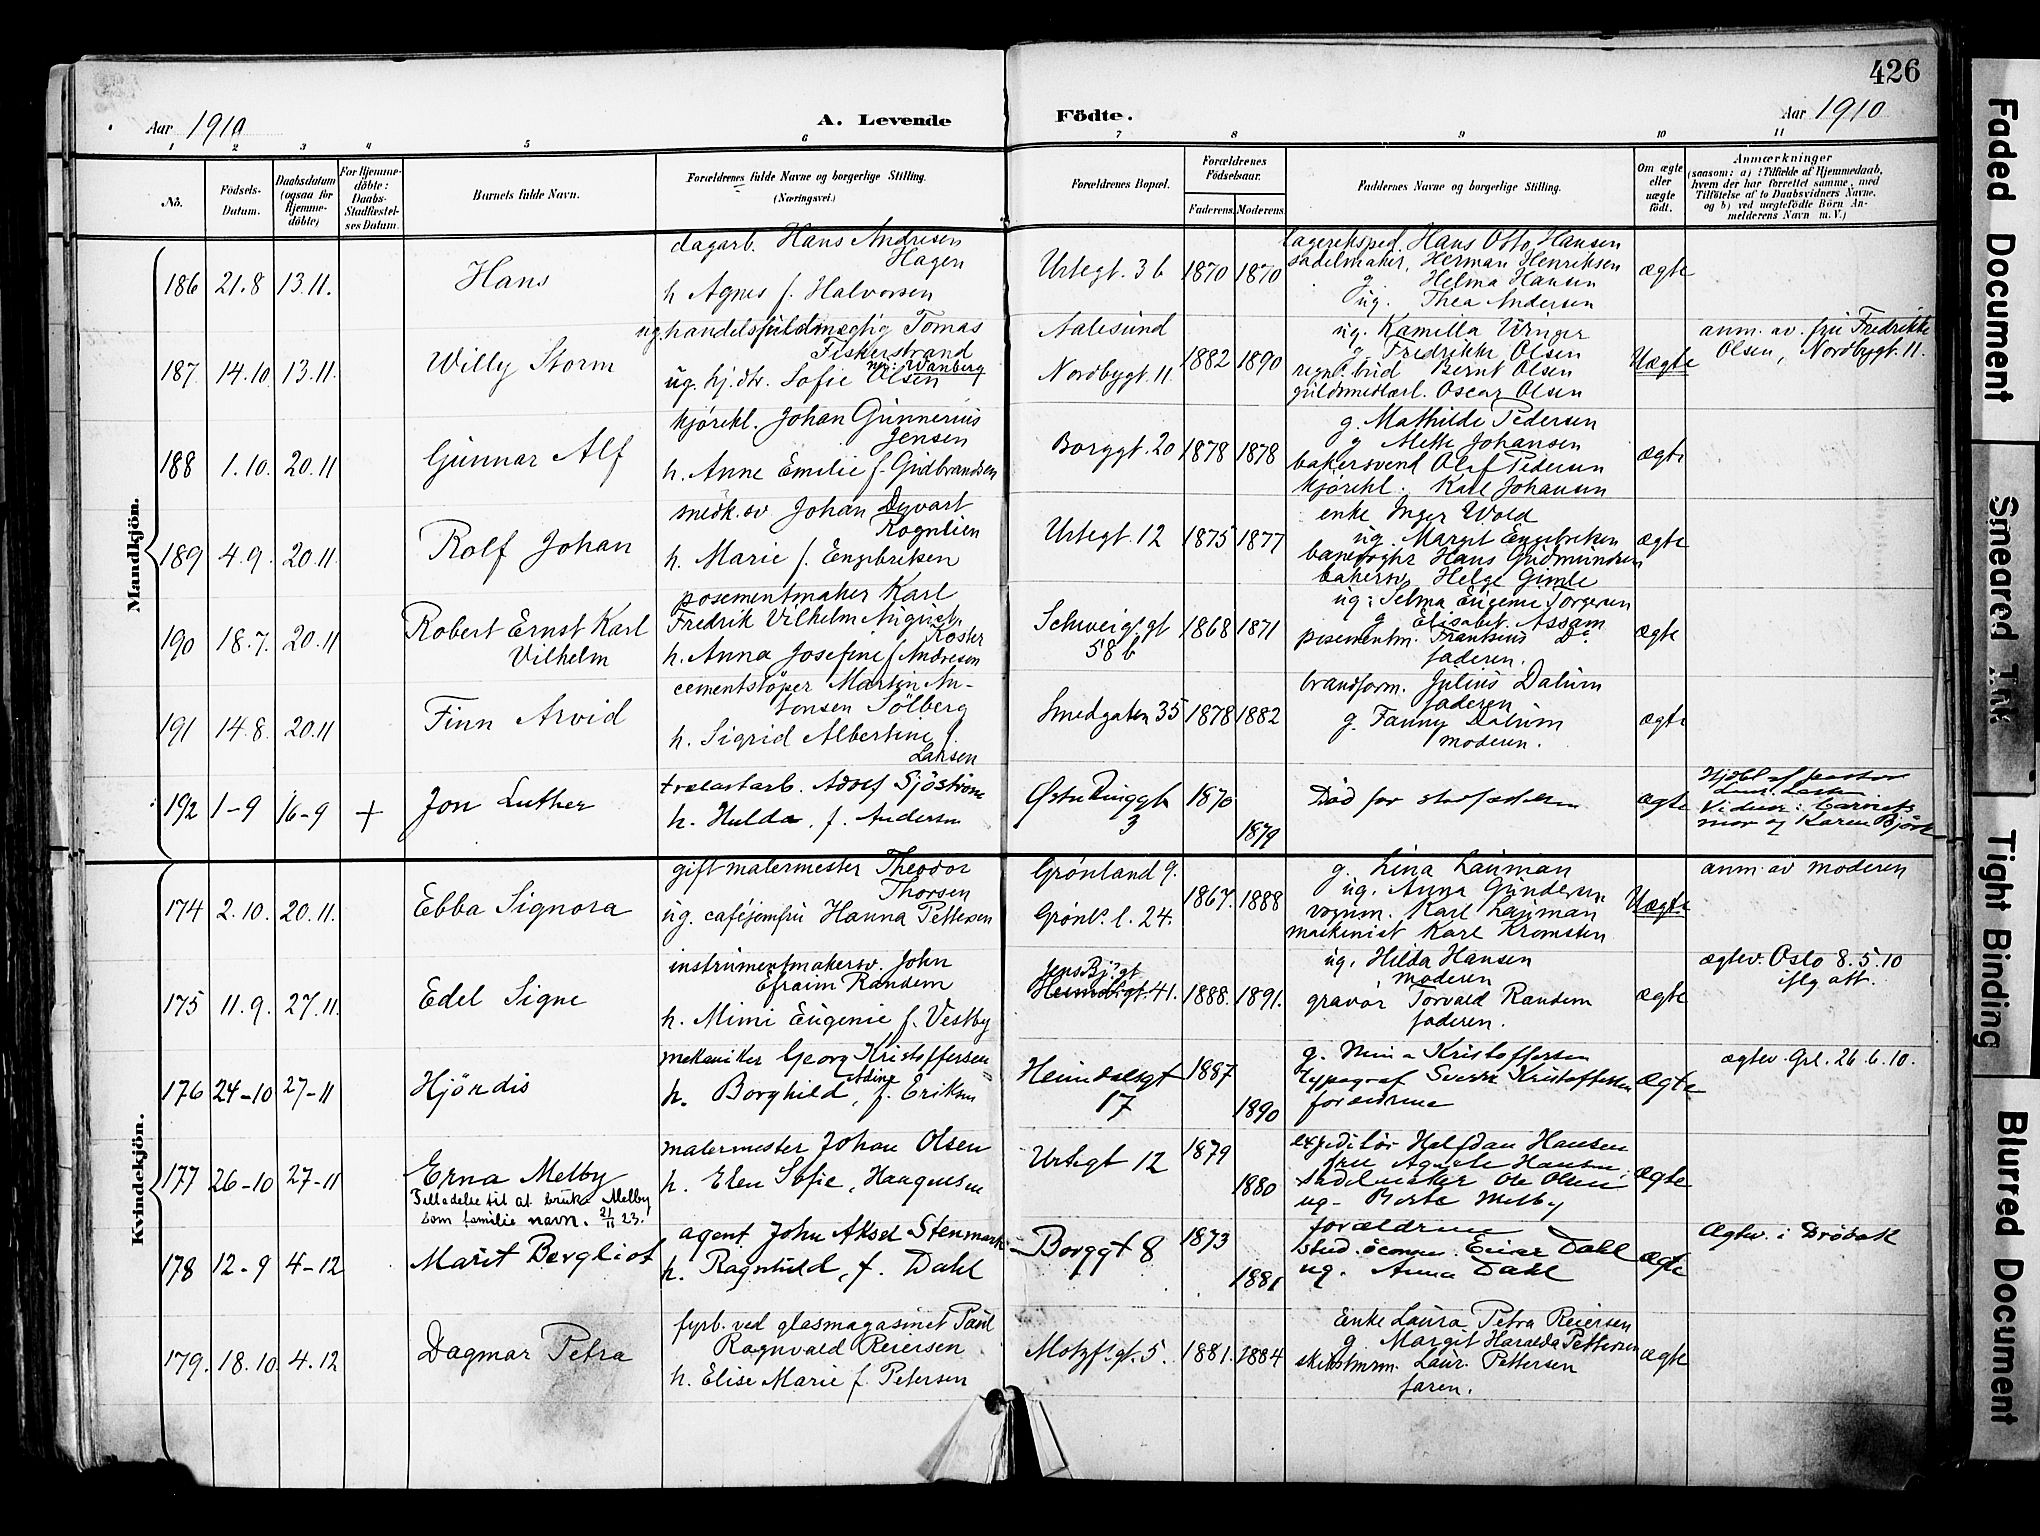 426
Aar 1910
A. Levende
Födte.
Aar 1910
1 2 3 4 5 6 7 8 9 10 11
No.
Födsels-
Datum.
Daabsdatum
(ogsaa for
Hjemme-
döbte)
For Hjemme-
döbte:
Daabs-
Stadfæstel-
ses Datum.
Barnets fulde Navn.
Forældrenes fulde Navne og borgerlige Stilling.
(Næringsvei.)
Forældrenes Bopæl.
Forældrenes
Födselsaar.
Faderens. Moderens.
Faddernes Navne og borgerlige Stilling.
Om ægte
eller
uægte
födt.
Anmærkninger
(saasom: a) i Tilfælde af Hjemmedaab,
hvem der har forrettet samme, med
Tilföielse af to Daabsvidners Navne,
og b) ved uægtefödte Börn An-
melderens Navn m. V.)
Mandkjön.
186 21.8 13.11. Hans
dagarb. Hans Andresen
Hagen
h. Agnes f. Halvorsen
Urtegt. 3 b 1870 1870
lagereksped. Hans Otto Hansen
sadelmaker, Herman Henriksen
g. Helma Hansen
ug. Thea Andersen
ægte
187 14.10 13.11. Willy Storm
ug. handelsfuldmægtig Tomas
Fiskerstrand
ug. hj.dtr. Sofie Olsen
Aalesund
Nordbygt. 11 1882 1890
ug. Kamilla
g. Fredrikke Olsen
Bernt Olsen
guldsmedlærl. Oscar Olsen
Uægte
anm. av. fru Fredrikke
Olsen, Nordbygt. 11.
188 1.10. 20.11 Gunnar Alf
kjørekl. Johan Gunnerius
Jensen
h. Anne Emilie f. Gudbrandsen
Borggt. 20 1878 1878
g. Mathilde Pedersen
g. Mette Johansen
bakersvend Olaf Pedersen
kjørekl. Karl Johansen
ægte
189 4.9. 20.11 Rolf Johan
snedk. sv Johan Dyvart
Rognlien
h. Marie f. Engebretsen
Urtegt. 12 1875 1877
enke Inger Wold
ug. Margit Engebretsen
banevogter Hans Gudmundsen
bakersv. Helge Gimle
ægte
190 18.7. 20.11 Robert Ernst Karl
Vilhelm
posementmaker Karl
Fredrik Vilhelm August
Koster
h. Anna Josefine f. Andresen
Schweigsgt
58 b 1868 1871
ug. Selma Eugenie Torgersen
g. Elisabet Assam
posementm. Frantsius Do
faderen.
ægte
191 14.8. 20.11 Finn Arvid
cementstøper Martin An-
tonsen Sölberg
h. Sigrid Albertine f.
Larsen
Smedgaten 35 1878 1882
brandform. Julius Dalum
faderen
g. Fanny Dalum
moderen.
ægte
192 1-9 16-9 + Jon Luther
trælastarb. Adolf Sjöström
h. Hulda, f. Andersen
Østre Ringgt
3 1870
1879
Død før stadfæstelsen
ægte
Hjdbt af pastor
Vidner: barnets
mor og Karen Björk
Kvindekjön.
174 2.10. 20.11. Ebba Signora
gift malermester Theodor
Thorsen
ug. caféjomfru Hanna Pettersen
Grønland 9.
Grønl. l. 24. 1867. 1888
g. Lina Lauman
ug. Anna Gundersen
vognm. Karl Lauman
maskinist Karl Kromsten
Uægte
anm. av moderen
175 11.9. 27.11. Edel Signe
instrumentmakersv. John
Efraim Randem
h. Mimi Eugenie f. Vestby
Jens Bj.gt
41. 1888. 1891.
ug. Hilda Hansen
moderen
gravør Torvald Randem
faderen.
ægte
ægtev. Oslo 8.5.10
iflg att.
176 24-10 27-11 Hjördis
mekaniker Georg Kristoffersen
h. Borghild Adine, f. Eriksen
Heimdalsgt
17 1887
1890
g. Mina Kristoffersen
typograf Sverre Kristoffersen
forældrene
ægte
ægtev. Grl. 26.6.10.
177 26-10 27-11 Erna Melby
Tilladelse til at bruke Melby
som familie navn. 21/11 23.
malermester Johan Olsen
h. Elen Sofie, Haagensen
Urtegt 12 1879
1880
expeditør Halfdan Hansen
fru Agnete Hansen
sadelmaker Ole Olsen
ug. Borte Melby
ægte
178 12-9 4-12 Marit Bergliot
agent John Aksel Stenmark
h. Ragnhild, f. Dahl
Borggt 8 1873
1881
forældrene
stud. öconom. Einar Dahl
ug. Anna Dahl
ægte
Ægtev. i Drøbak
179. 18.10 4.12 Dagmar Petra
fyrb. ved glasmagasinet Paul
Ragnvald Reiersen
h. Elise Marie f. Petersen
Motzfs.gt. 5. 1881. 1884
Enke Laura Petra Reiersen
g. Margit Haralda Pettersen
Laur. Pettersen
faren.
ægte
Faded Document
Smeared Ink
Tight Binding
Blurred Document